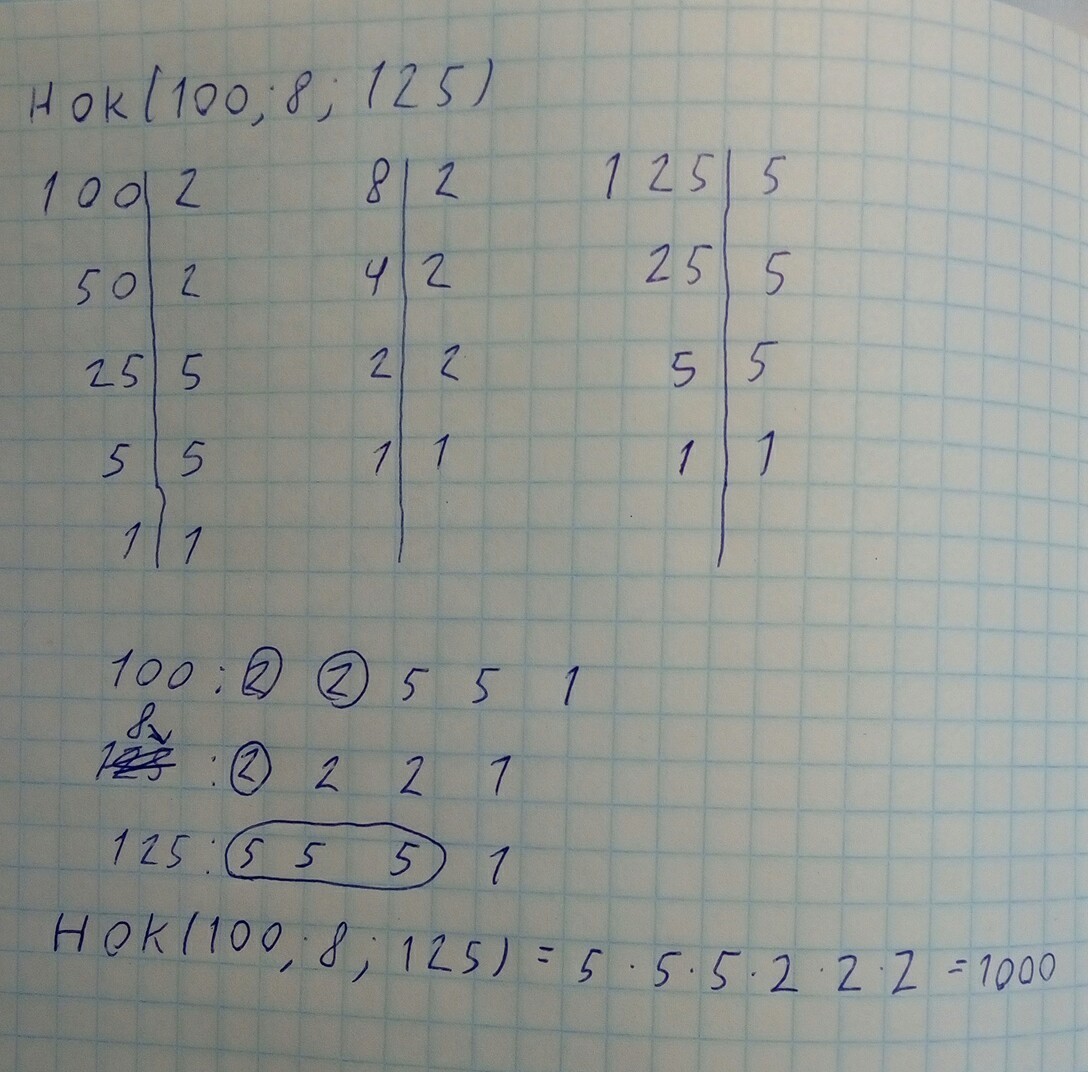 НОК(100; 8; 125)
100|2 8|2 125|5
50|2 4|2 25|5
25|5 2|2 5|5
5|5 1|1 1|1
1|1
100: 2 2 5 5 1
8
125 : 2 2 2 1
125: 5 5 5 1
НОК(100; 8; 125) = 5 · 5 · 5 · 2 · 2 · 2 = 1000